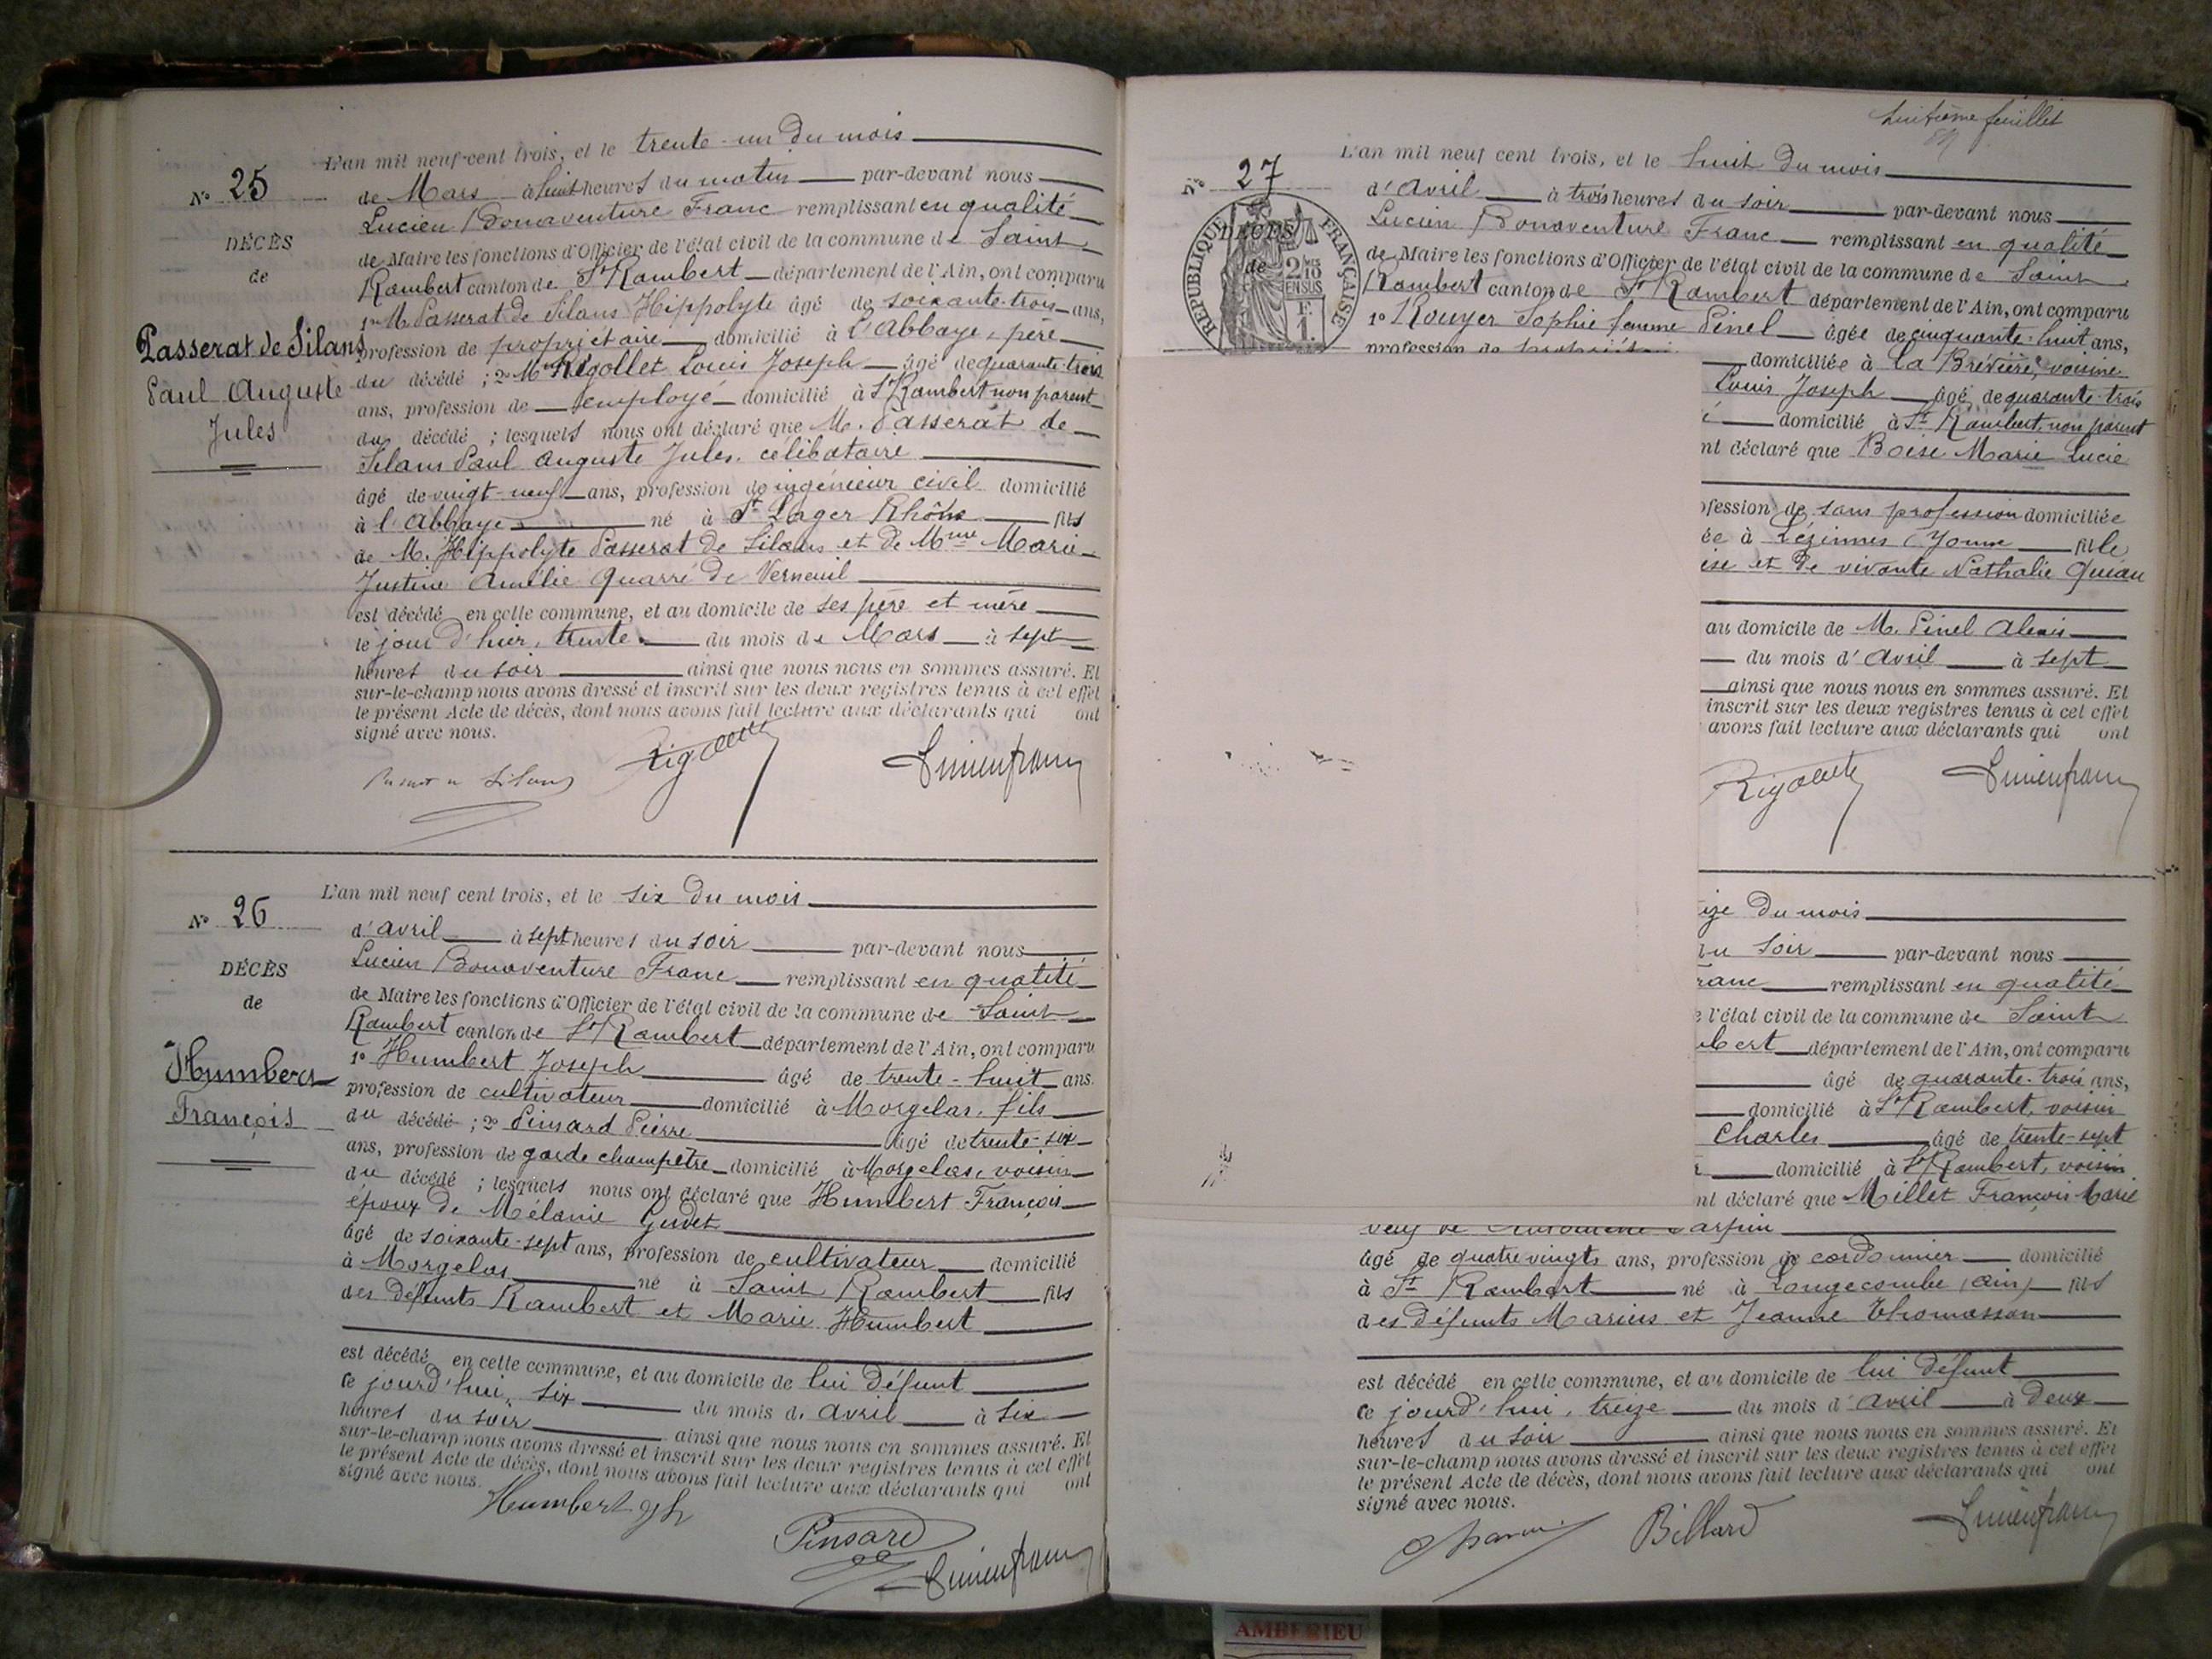 L'an mil neuf cent trois, et le trente-un du mois
N° 25
de Mars à huit heures du matin par-devant nous
Lucien Bonaventure Franc remplissant en qualité
DÉCÈS
de Maire les fonctions d'Officier de l'état civil de la commune de Saint
de
Rambert canton de St Rambert département de l'Ain, ont comparu
1° M. Passerat de Silans Hippolyte âgé de soixante-trois ans,
Passerat de Silans
profession de propriétaire domicilié à l'Abbaye, père
Paul Auguste
du décédé ; 2° M. Rigollet Louis Joseph âgé de quarante-trois
ans, profession de employé domicilié à St Rambert non parent
Jules
du décédé ; lesquels nous ont déclaré que M. Passerat de
Silans Paul Auguste Jules, célibataire
âgé de vingt-neuf ans, profession de ingénieur civil domicilié
à l'Abbaye né à St Lager Rhône fils
de M. Hippolyte Passerat de Silans et de Mme Marie
Justine Amélie Quarré de Verneuil
est décédé en cette commune, et au domicile de ses père et mère
le jour d'hier, trente du mois de Mars à sept
heures du soir ainsi que nous nous en sommes assuré. Et
sur-le-champ nous avons dressé et inscrit sur les deux registres tenus à cet effet
le présent Acte de décès, dont nous avons fait lecture aux déclarants qui ont
signé avec nous.
L'an mil neuf cent trois, et le six du mois
N° 26
d'avril à sept heures du soir par-devant nous
Lucien Bonaventure Franc remplissant en qualité
DÉCÈS
de Maire les fonctions d'Officier de l'état civil de la commune de Saint
de
Rambert canton de St Rambert département de l'Ain, ont comparu
1° Humbert Joseph âgé de trente-huit ans.
Humbert
profession de cultivateur domicilié à Morgelas, fils
François
du décédé ; 2° Pinsard Pierre âgé de trente-six
ans, profession de garde champêtre domicilié à Morgelas, voisin
du décédé ; lesquels nous ont déclaré que Humbert François
époux de Mélanie Gudet
âgé de soixante-sept ans, profession de cultivateur domicilié
à Morgelas né à Saint Rambert fils
des défunts Rambert et Marie Humbert
est décédé en cette commune, et au domicile de lui défunt
ce jourd'hui, six du mois d'avril à six
heures du soir ainsi que nous nous en sommes assuré. Et
sur-le-champ nous avons dressé et inscrit sur les deux registres tenus à cet effet
le présent Acte de décès, dont nous avons fait lecture aux déclarants qui ont
signé avec nous.
Humbert
Pinsard
huitième feuillet
L'an mil neuf cent trois, et le huit du mois
N° 27
d'avril à trois heures du soir par-devant nous
Lucien Bonaventure Franc remplissant en qualité
RÉPUBLIQUE FRANÇAISE
DÉCÈS
de
2/10 EN SUS
F. 1.
de Maire les fonctions d'Officier de l'état civil de la commune de Saint
Rambert canton de St Rambert département de l'Ain, ont comparu
1° Rouyer Sophie femme Pinel âgée de cinquante-huit ans,
profession de
domiciliée à La Brévière, voisine
Louis Joseph âgé de quarante-trois
domicilié à St Rambert, non parent
nt déclaré que Boise Marie Lucie
ofession de sans profession domiciliée
ée à Lézinnes (Yonne fille
ise et de vivante Nathalie Quiau
au domicile de M. Pinel Alexis
du mois d'avril à sept
ainsi que nous nous en sommes assuré. Et
inscrit sur les deux registres tenus à cet effet
avons fait lecture aux déclarants qui ont
ize du mois
du soir par-devant nous
ranc remplissant en qualité
e l'état civil de la commune de Saint
mbert département de l'Ain, ont comparu
âgé de quarante-trois ans,
domicilié à St Rambert, voisin
Charles âgé de trente-sept
domicilié à St Rambert, voisin
nt déclaré que Millet François Marie
veuf de
âgé de quatre vingts ans, profession de cordonnier domicilié
à St Rambert né à Longecombe (Ain) fils
des défunts Marius et Jeanne Thomasson
est décédé en cette commune, et au domicile de lui défunt
ce jourd'hui, treize du mois d'avril à deux
heures du soir ainsi que nous nous en sommes assuré. Et
sur-le-champ nous avons dressé et inscrit sur les deux registres tenus à cet effet
le présent Acte de décès, dont nous avons fait lecture aux déclarants qui ont
signé avec nous.
Billard
AMBERIEU